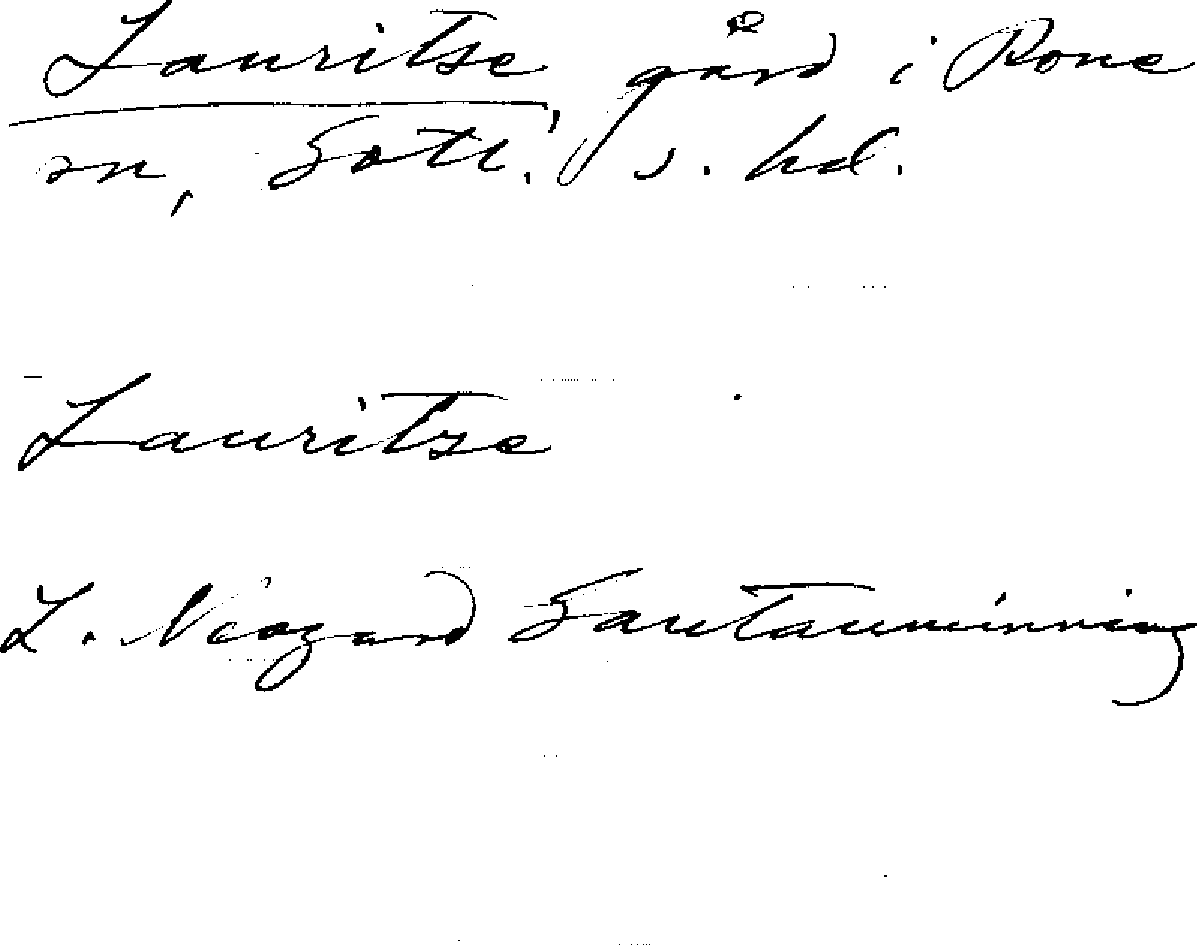 Lauritse, gård i Rone
sn, Gotl. s. hd.
Lauritse
L. Niogard Gautauminning